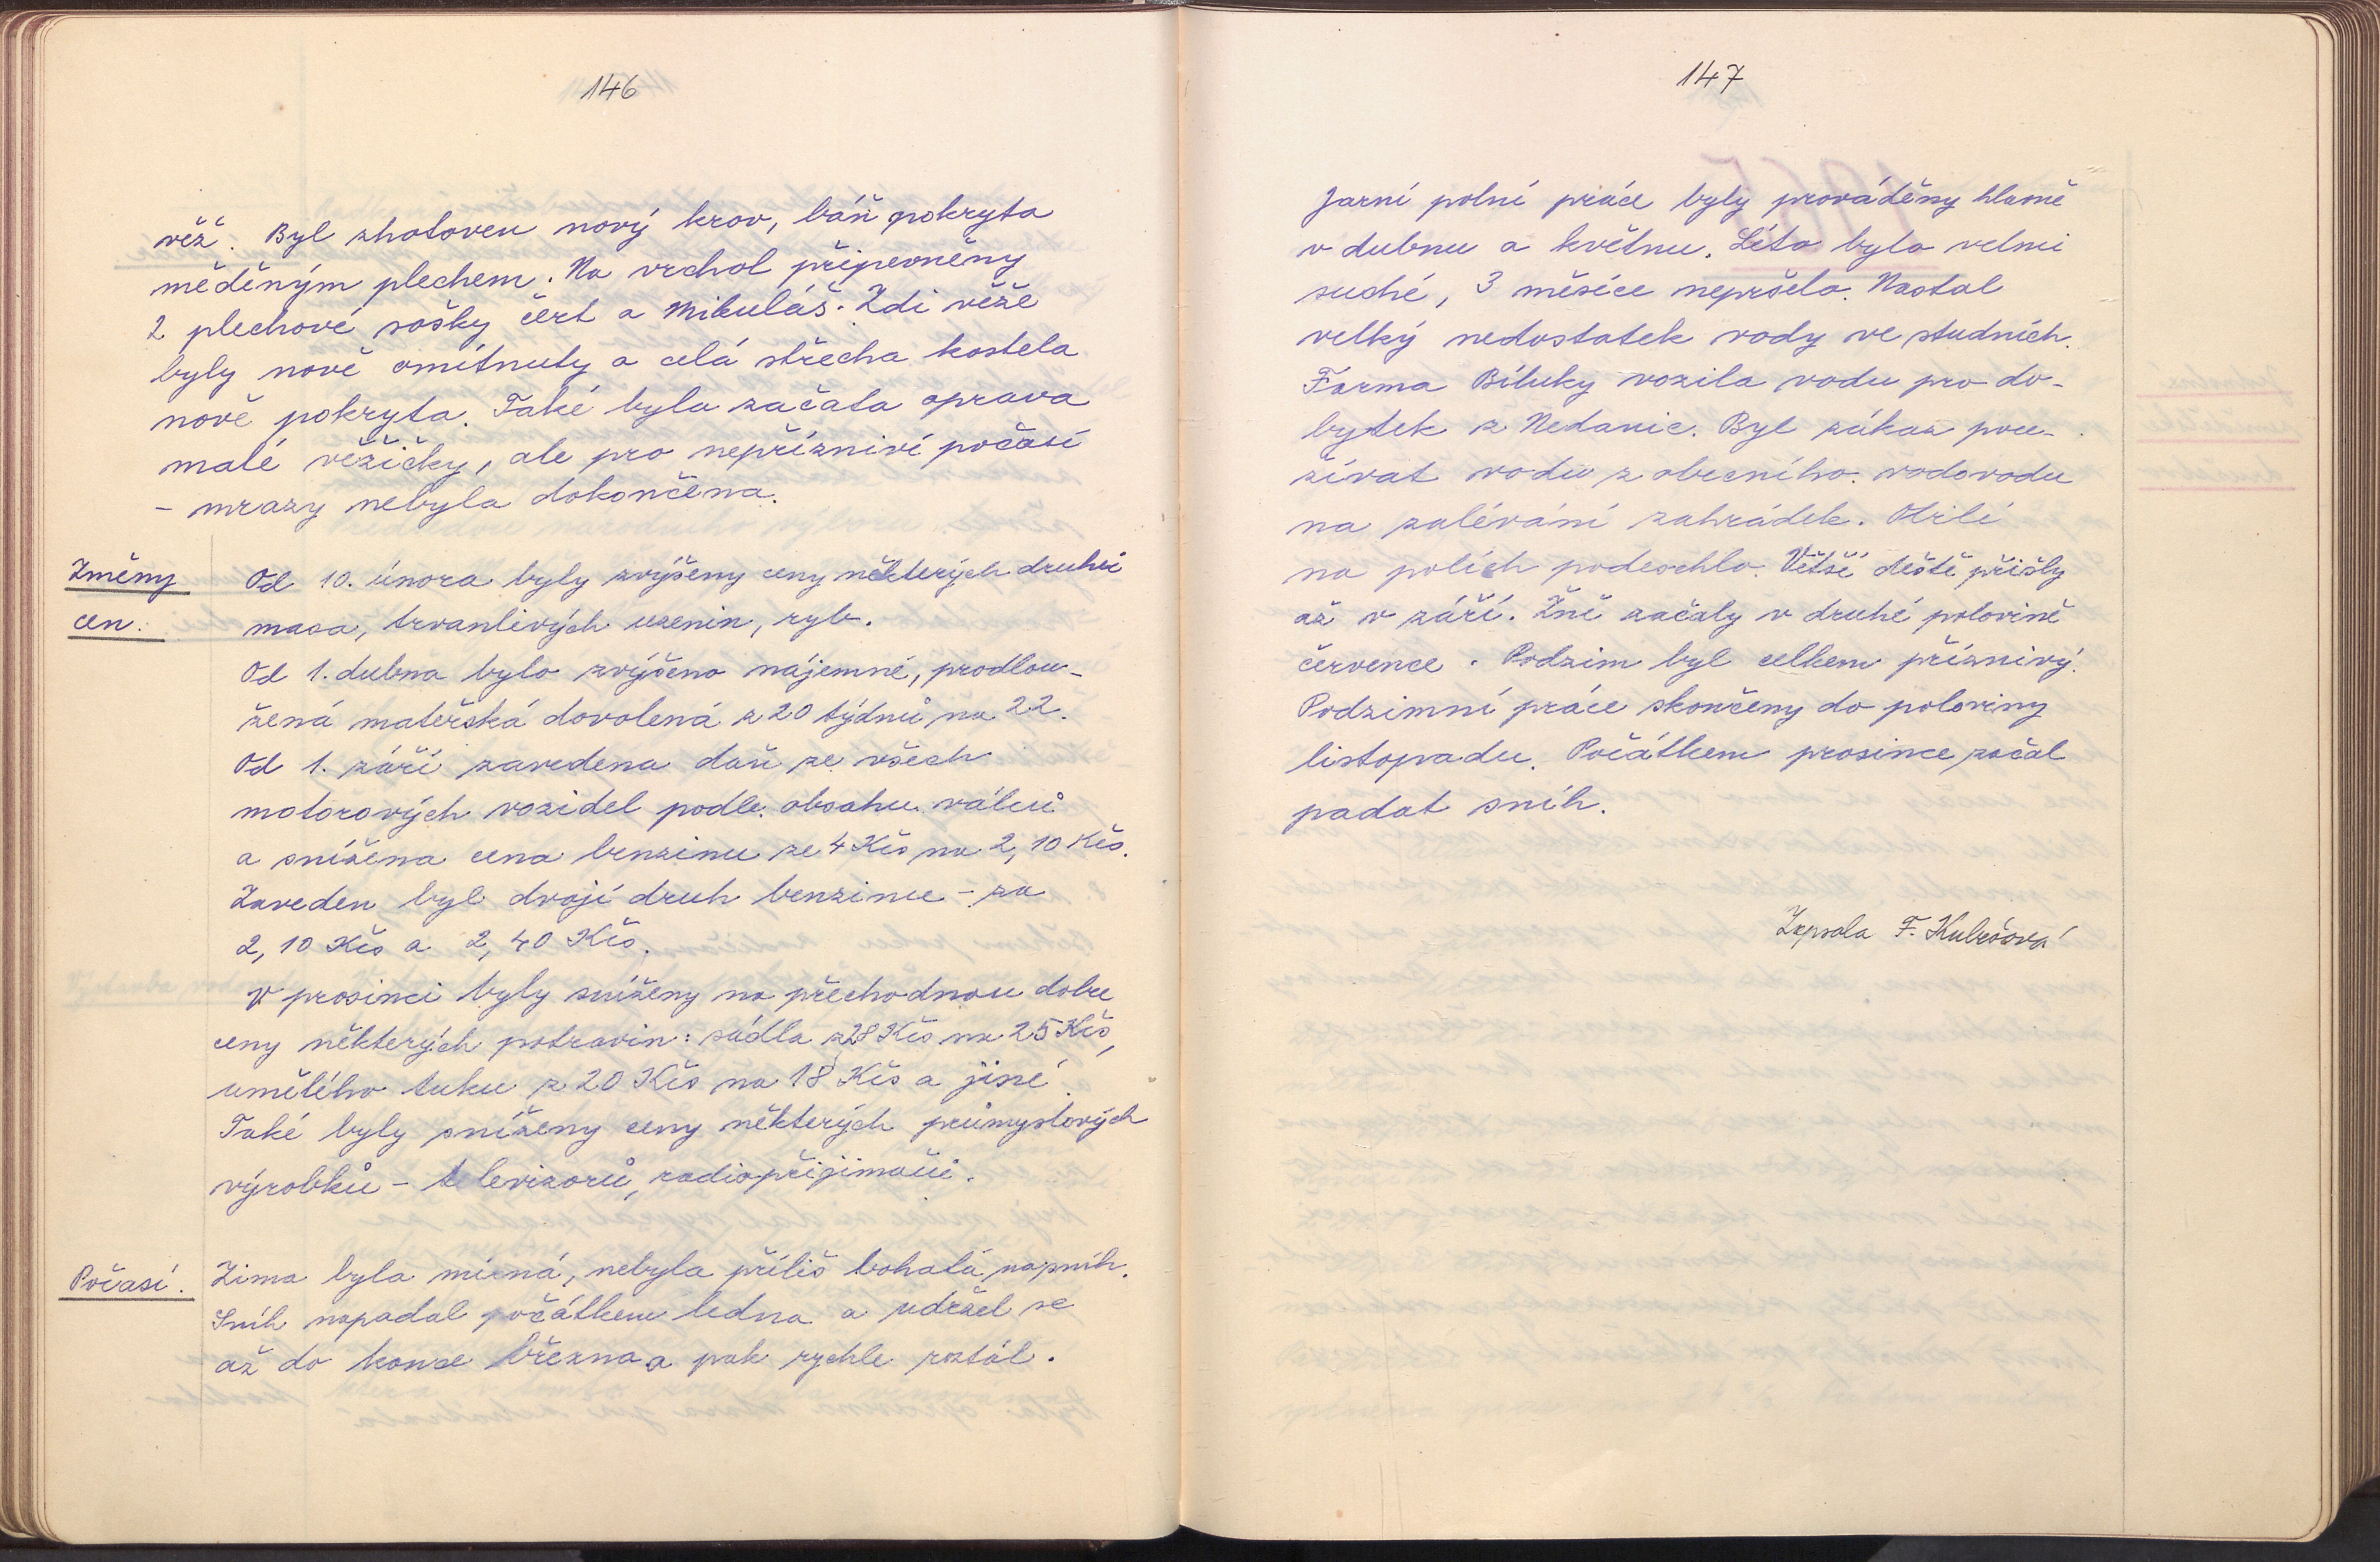 146
věž. Byl zhotoven nový krov, báň pokryta
měděným plechem. Na vrchol připevněny
2 plechové sošky čert a Mikuláš. Zdi věže
byly nově omítnuty a celá střecha kostela
nově pokryta. Také byla začata oprava
malé věžičky, ale pro nepříznivé počasí
- mrazy nebyla dokončena.
Změny
cen.
Od 10. února byly zvýšeny ceny některých druhů
masa, trvanlivých uzenin, ryb.
Od 1. dubna bylo zvýšeno nájemné, prodlou-
žená mateřská dovolená z 20 týdnů na 22.
Od 1. září zavedena daň ze všech
motorových vozidel podle obsahu válců
a snížena cena benzinu ze 4 Kčs na 2,10 Kčs.
Zaveden byl dvojí druh benzinu - za
2,10 Kčs a 2,40 Kčs.
V prosinci byly sníženy na přechodnou dobu
ceny některých potravin: sádla z 28 Kčs na 25 Kčs,
umělého tuku z 20 Kčs na 18 Kčs a jiné.
Také byly sníženy ceny některých průmyslových
výrobků - televizorů, radiopřijimačů.
Počasí.
Zima byla mírná, nebyla příliš bohatá na sníh.
Sníh napadal počátkem ledna a udržel se
až do konce března a pak rychle roztál.
147
Jarní polní práce byly prováděny hlavně
v dubnu a květnu. Léto bylo velmi
suché, 3 měsíce nepršelo. Nastal
velký nedostatek vody ve studních.
Farma Bíluky vozila vodu pro do-
bytek z Nedanic. Byl zákaz pou-
žívat vodu z obecního vodovodu
na zalévání zahrádek. Obilí
na polích podeschlo. Větší deště přišly
až v září. Žně začaly v druhé polovině
července. Podzim byl celkem příznivý.
Podzimní práce skončeny do poloviny
listopadu. Počátkem prosince začal
padat sníh.
Zapsala F.